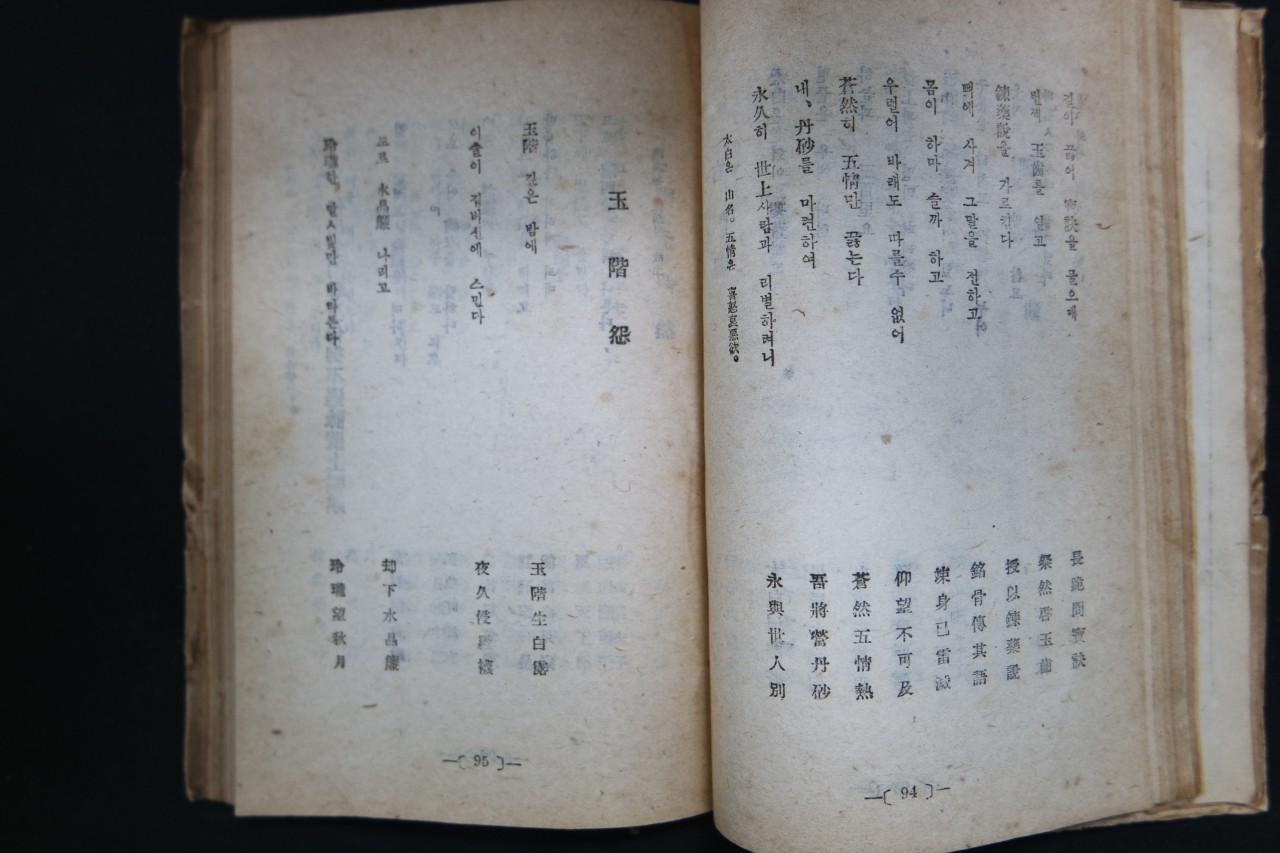 길이 꿇어 寶訣을 물으매
玉齒를 열고
鍊藥說을 가르킨다
뼈에 사겨 그말을 전하고
몸이 하마 슬까 하고
우럴어 바래도 따를수 없어
蒼然히 五情만 끓는다
내、丹砂를 마련하여
永久히 世上사람과 리별하려니
太白은 山名。五情은 喜怒哀惡欲。
長跪問寶訣
粲然啓玉齒
授以鍊藥說
銘骨傳其語
竦身已雷滅
仰望不可及
蒼然五情熱
吾將營丹砂
永與世人別
—〔 94 〕—
玉階怨
玉階 깊은 밤에
이슬이 깁버선에 스민다
도로 水晶簾 나리고
玲瓏한 달ㅅ빛만 바라본다
玉階生白露
夜久侵羅襪
却下水晶簾
玲瓏望秋月
—〔 95 〕—